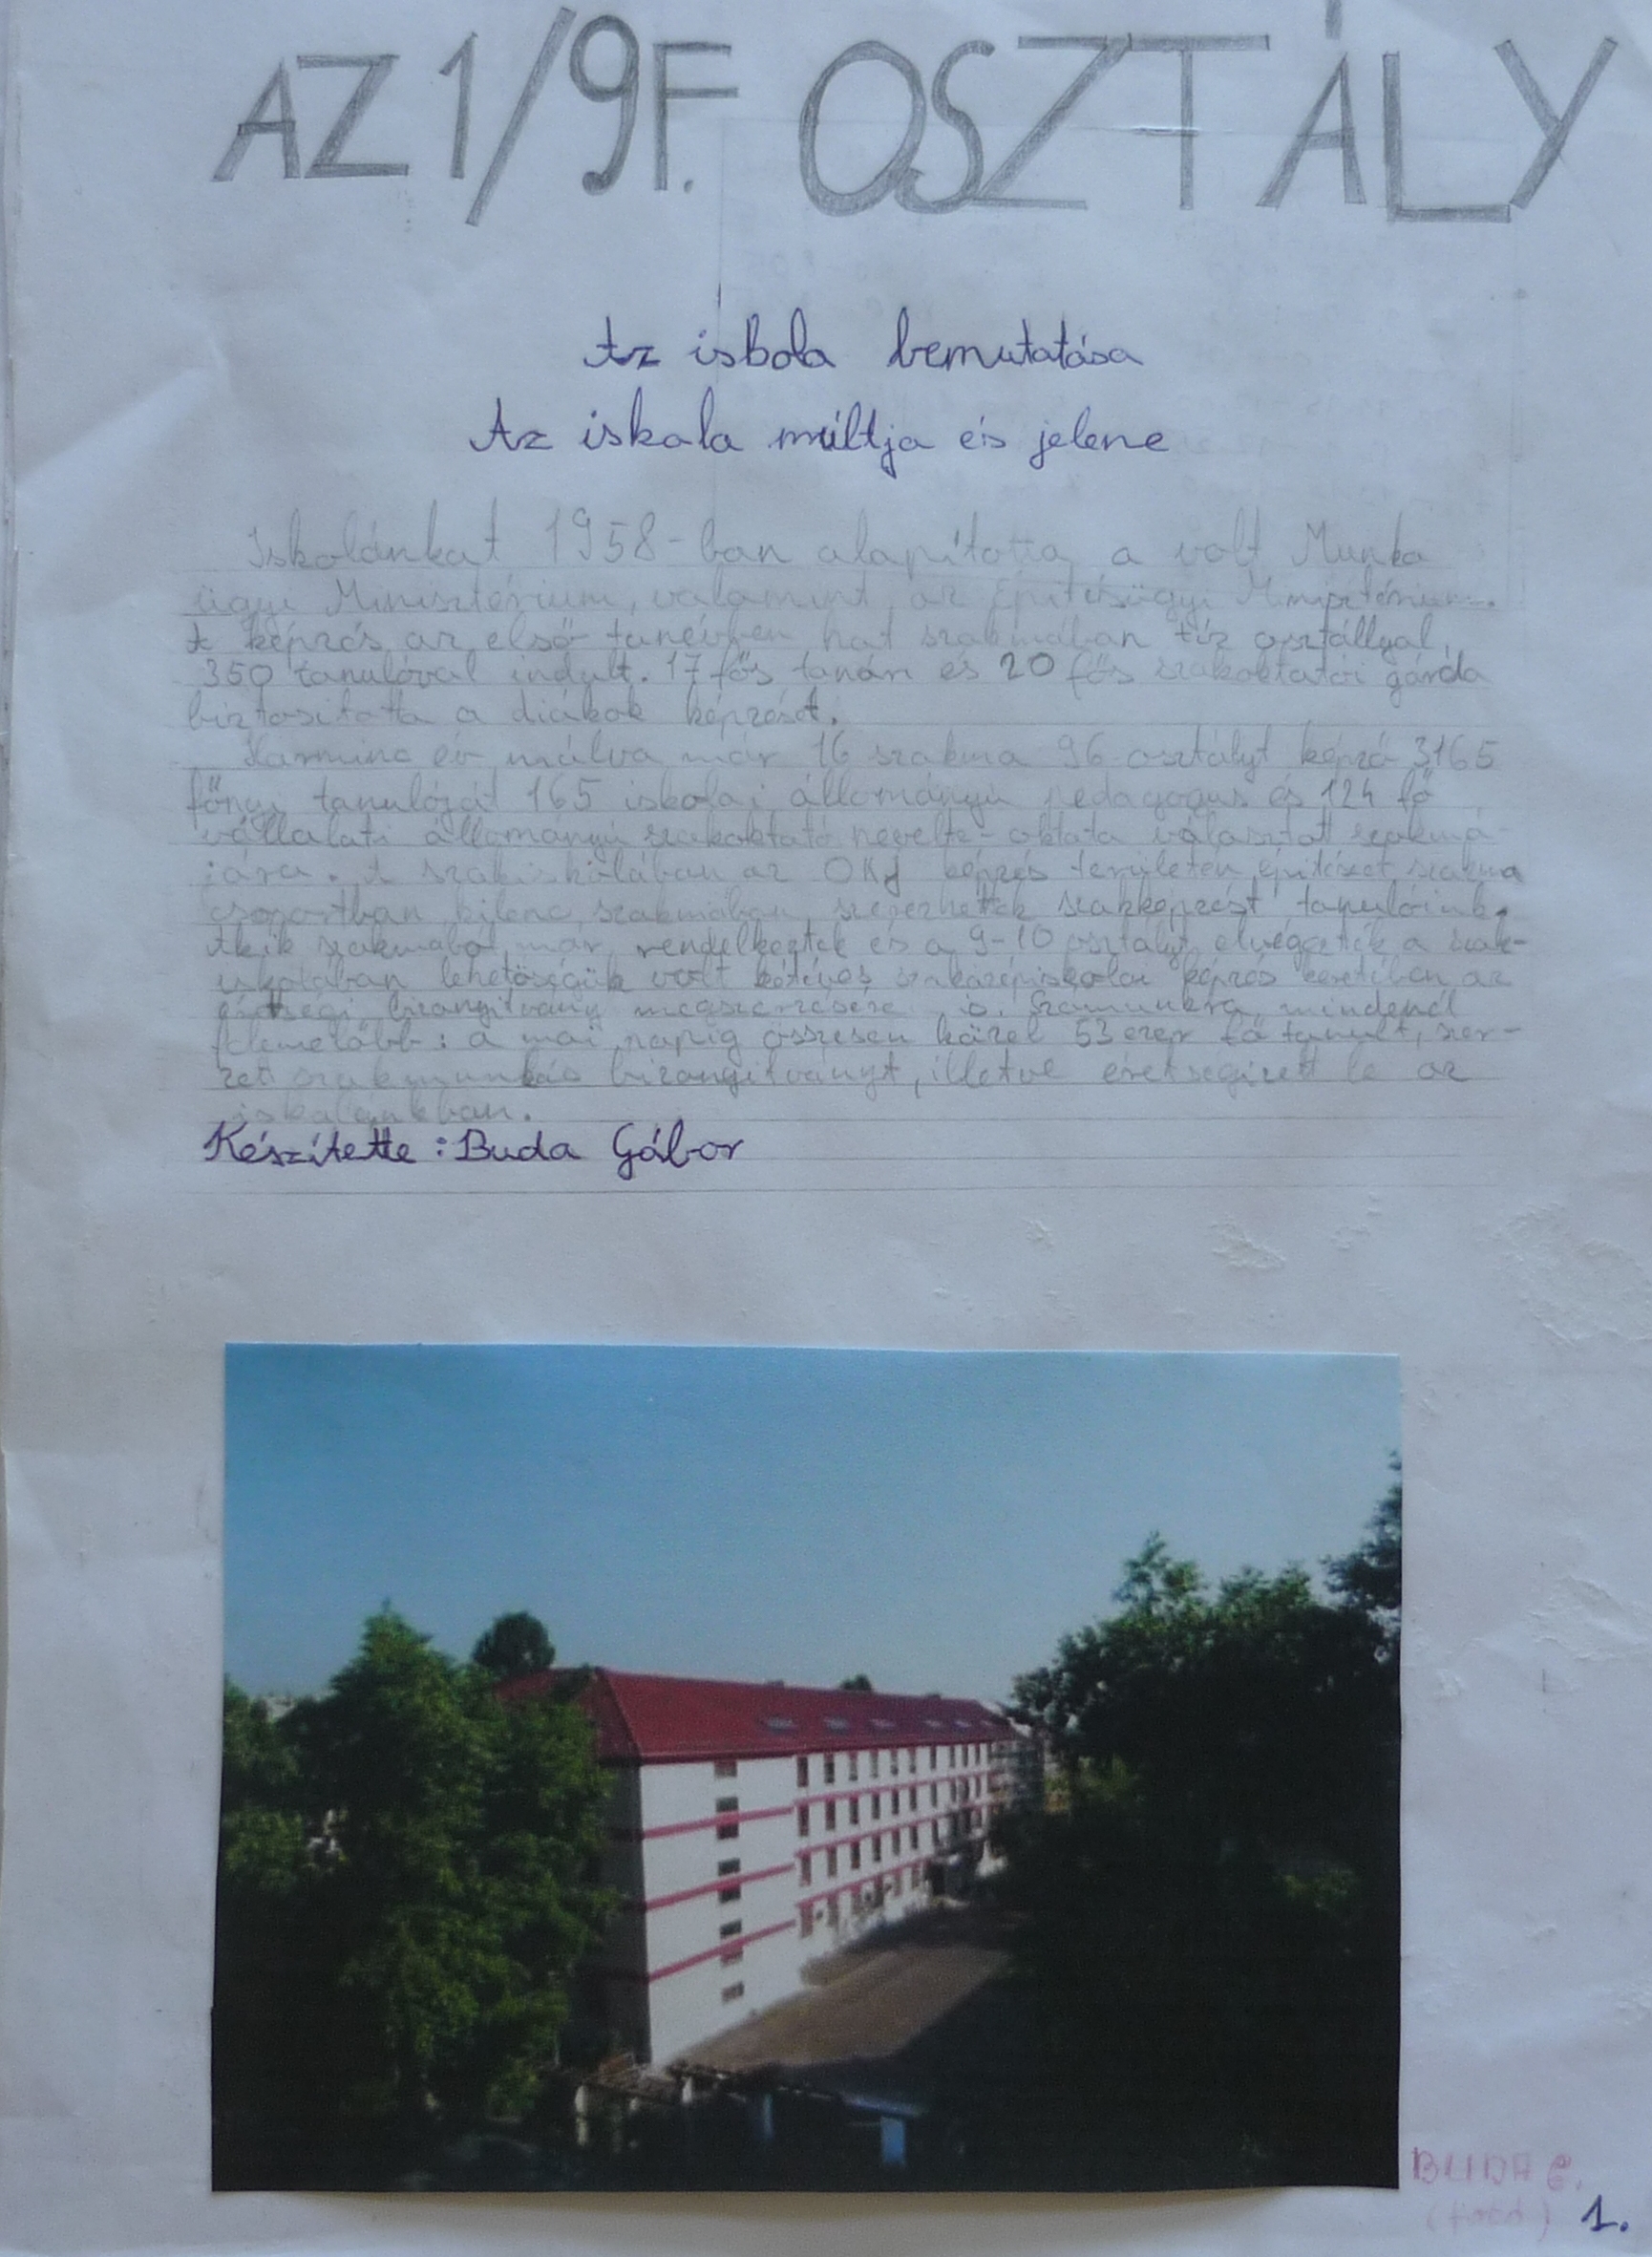 AZ 1/9F. OSZTÁLY
Az iskola bemutatása
Az iskala múltja és jelene
Iskolánkat 1958-ban alapította a volt Munka
ügyi Minisztérium, valamint az Építésügyi Minisztérium.
A képzés az első tanévben hat szakmában tíz osztállyal,
350 tanulóval indult. 17 fős tanári és 20 fős szakoktatói gárda
biztosította a diákok képzését.
Harminc év múlva már 16 szakma 96 osztályt képző 3165
főnyi tanulóját 165 iskolai állományú pedagógus és 124 fő
vállalati állományú szakoktató nevelte-oktata választott szakmá-
jára. A szakiskolában az OKJ képzés területén építészet szakma
csoportban kilenc szakmában szerezhettek szakképzést tanulóink.
Akik szakmából már rendelkeztek és a 9-10 osztályt elvégezték a szak-
iskolában lehetőségük volt kétéves szakközépiskolai képzés keretében az
érettségi bizonyitvány megszerzésére is. Számunkra mindenél
felemelőbb: a mai napig összesen közel 53 ezer fő tanult, szer-
zett szakmunkás bizonyitványt, illetve érettségizett le az
iskolánkban.
Készítette: Buda Gábor
BUDA G.
(fotó)
1.